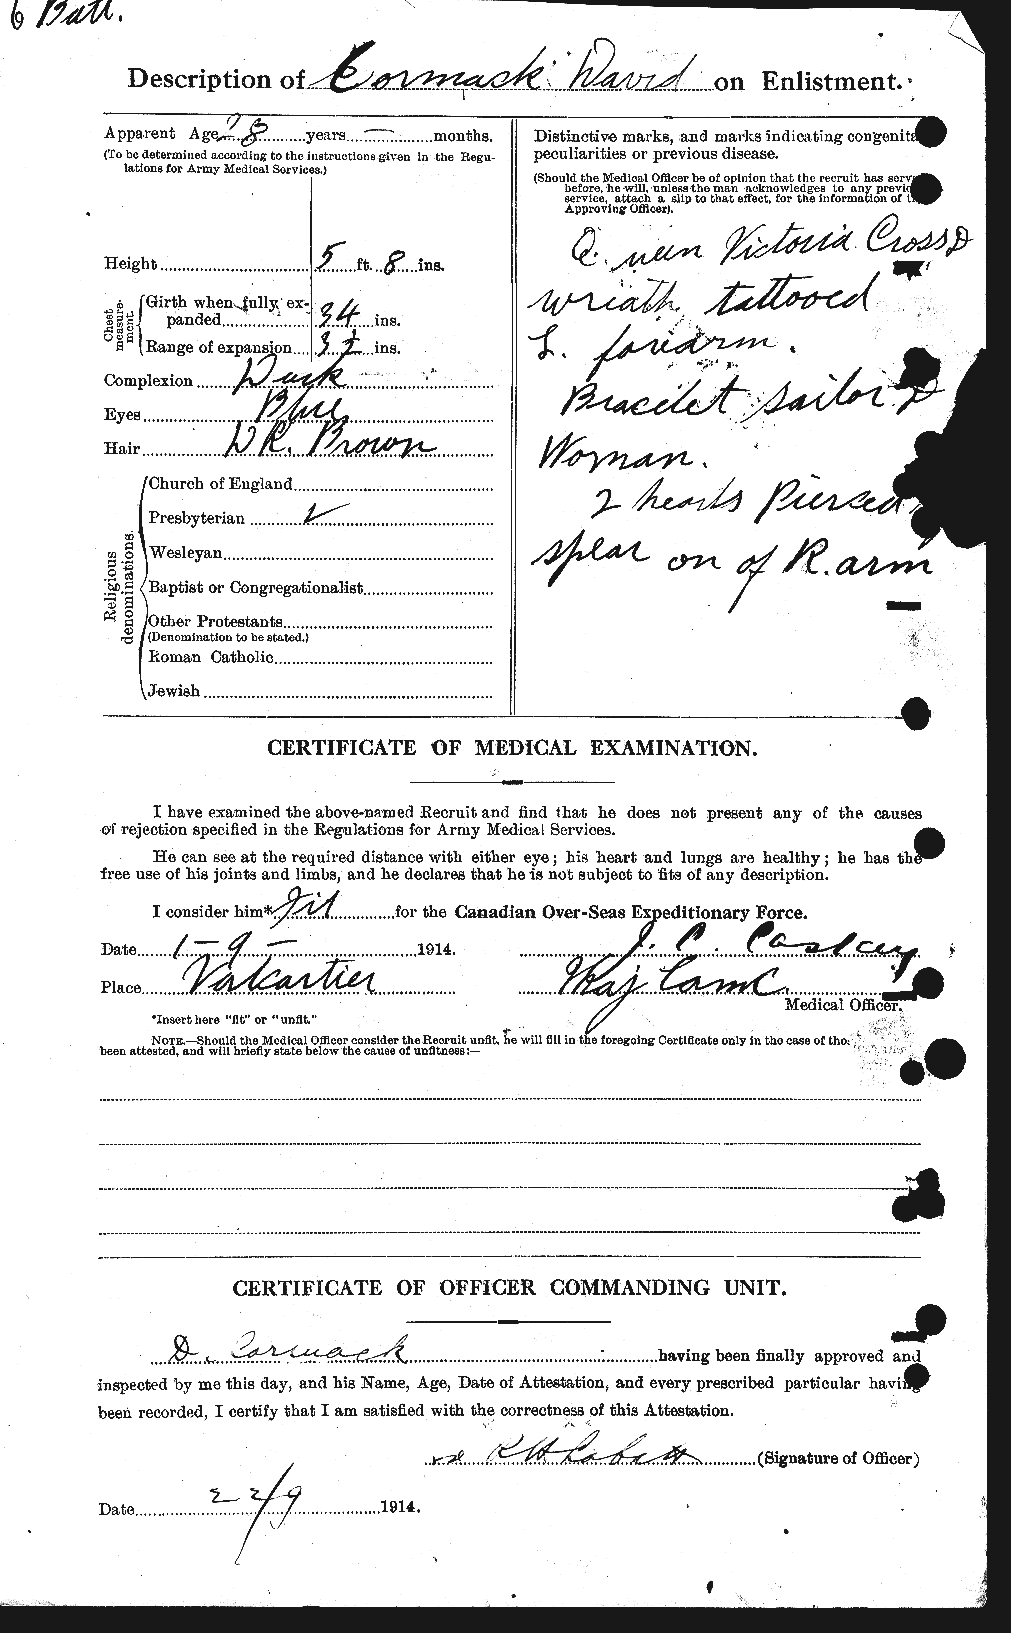 6 Batt.
Description of Cormack David on Enlistment.
Apparent Age 28 years — months.
(To be determined according to the instructions given in the Regu-
lations for Army Medical Services.)
Height 5 ft. 8 ins.
Chest measure-ment.
Girth when fully ex-
panded 34 ins.
Range of expansion 3 ins.
Complexion Dark
Eyes Blue
Hair DK. Brown
Religious denominations.
Church of England
Presbyterian ✓
Wesleyan
Baptist or Congregationalist
Other Protestants
(Denomination to be stated.)
Roman Catholic
Jewish
Distinctive marks, and marks indicating congenita
peculiarities or previous disease.
(Should the Medical Officer be of opinion that the recruit has serv
before, he will, unless the man acknowledges to any previo
service, attach a slip to that effect, for the information of t
Approving Officer).
Queen Victoria Cross &
wreath tattooed
L. forearm.
Bracelet Sailor &
Woman.
2 hearts Pierced
spear on of R. arm
CERTIFICATE OF MEDICAL EXAMINATION.
I have examined the above-named Recruit and find that he does not present any of the causes
of rejection specified in the Regulations for Army Medical Services.
He can see at the required distance with either eye; his heart and lungs are healthy; he has the
free use of his joints and limbs, and he declares that he is not subject to fits of any description.
I consider him* Fit for the Canadian Over-Seas Expeditionary Force.
Date 1 – 9 – 1914.
J. C. Caskey
Place Valcartier
Maj CAMC
Medical Officer.
*Insert here "fit" or "unfit."
NOTE.—Should the Medical Officer consider the Recruit unfit, he will fill in the foregoing Certificate only in the case of tho
been attested, and will briefly state below the cause of unfitness:—
CERTIFICATE OF OFFICER COMMANDING UNIT.
D. Cormack having been finally approved and
inspected by me this day, and his Name, Age, Date of Attestation, and every prescribed particular having
been recorded, I certify that I am satisfied with the correctness of this Attestation.
(Signature of Officer)
Date 22/9 1914.